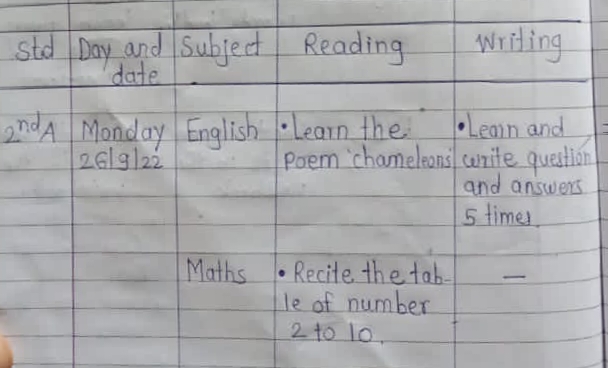 Std Day and Subject Reading Writing
date
2nd A Monday English • Learn the • Learn and
26/9/22 Poem 'chameleons' write question
and answers
5 times
Maths • Recite the tab- —
le of number
2 to 10.